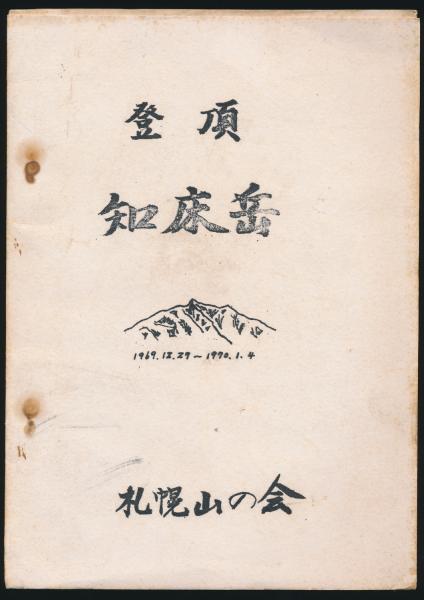 登頂
知床岳
1969.12.29~1970.1.4
札幌山の会